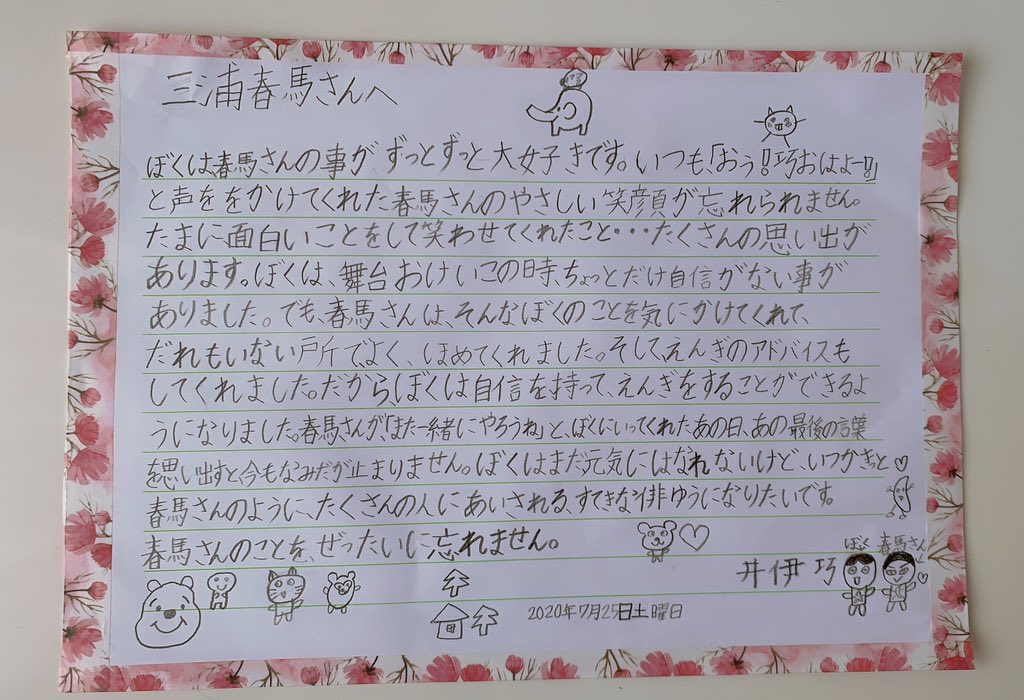 三浦春馬さんへ
ぼくは、春馬さんの事がずっとずっと大好きです。いつも、「おう!巧おはよー!!」
と声ををかけてくれた春馬さんのやさしい笑顔が忘れられません。
たまに面白いことをして笑わせてくれたこと・・・たくさんの思い出が
あります。ぼくは、舞台おけいこの時、ちょっとだけ自信がない事が
ありました。でも、春馬さんは、そんなぼくのことを気にかけてくれて、
だれもいない所でよく、ほめてくれました。そして、えんぎのアドバイスも
してくれました。だからぼくは自信を持って、えんぎをすることができるよ
うになりました。春馬さんが、「また一緒にやろうね」と、ぼくにいってくれたあの日、あの最後の言葉
を思い出すと、今もなみだが止まりません。ぼくはまだ元気にはなれないけど、いつかきっと
春馬さんのように、たくさんの人にあいされる、すてきな俳ゆうになりたいです。
春馬さんのことを、ぜったいに忘れません。
ぼく 春馬さん
井伊巧
2020年7月25日土曜日